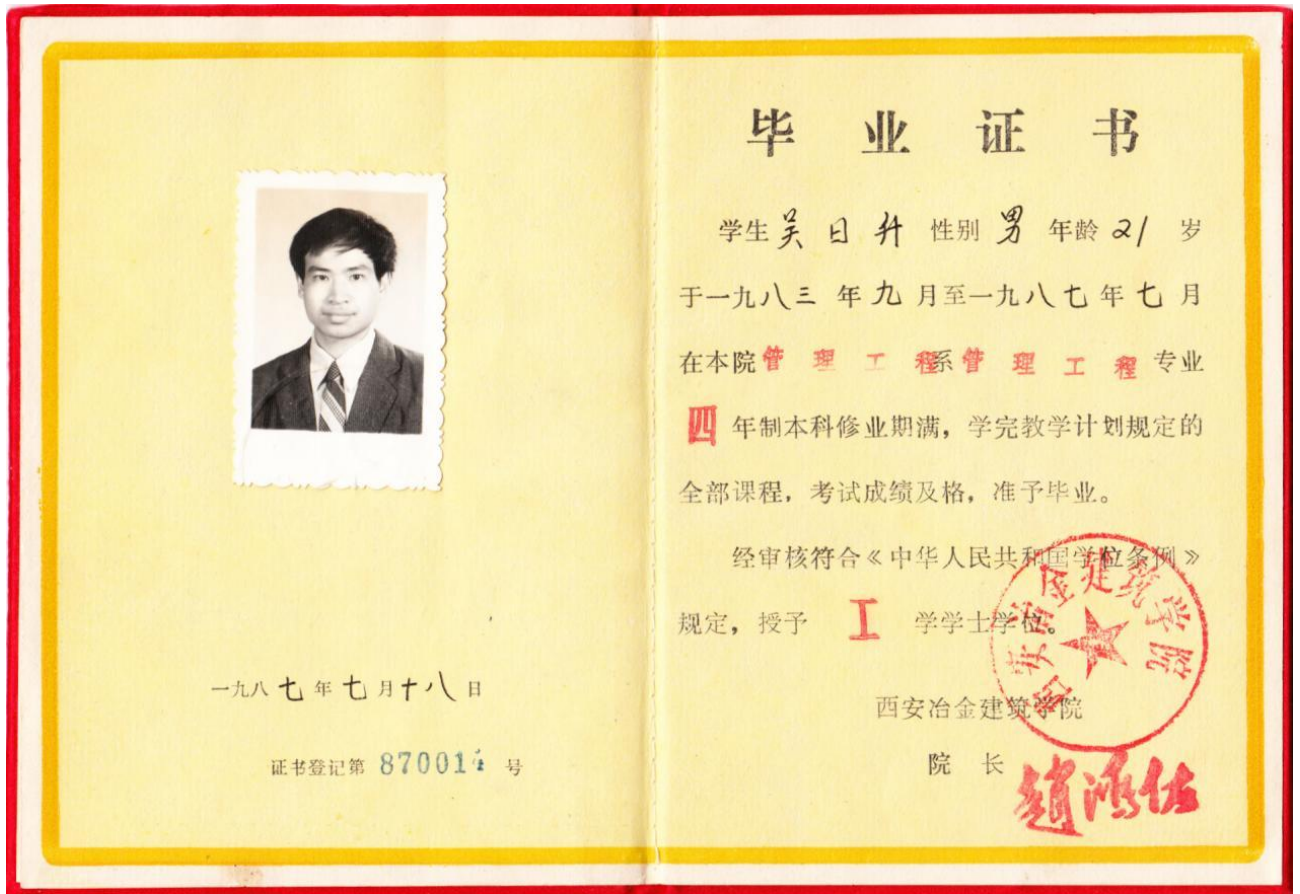 一九八七年七月十八日
证书登记第 87001 号
毕业证书
学生吴日升 性别男 年龄21岁
于一九八三年九月至一九八七年七月
在本院管理工程系管理工程专业
四年制本科修业期满，学完教学计划规定的
全部课程，考试成绩及格，准予毕业。
经审核符合《中华人民共和国学位条例》
规定，授予 工 学学士学位。
西安冶金建筑学院
西安冶金建筑学院
院长
趙鴻佐